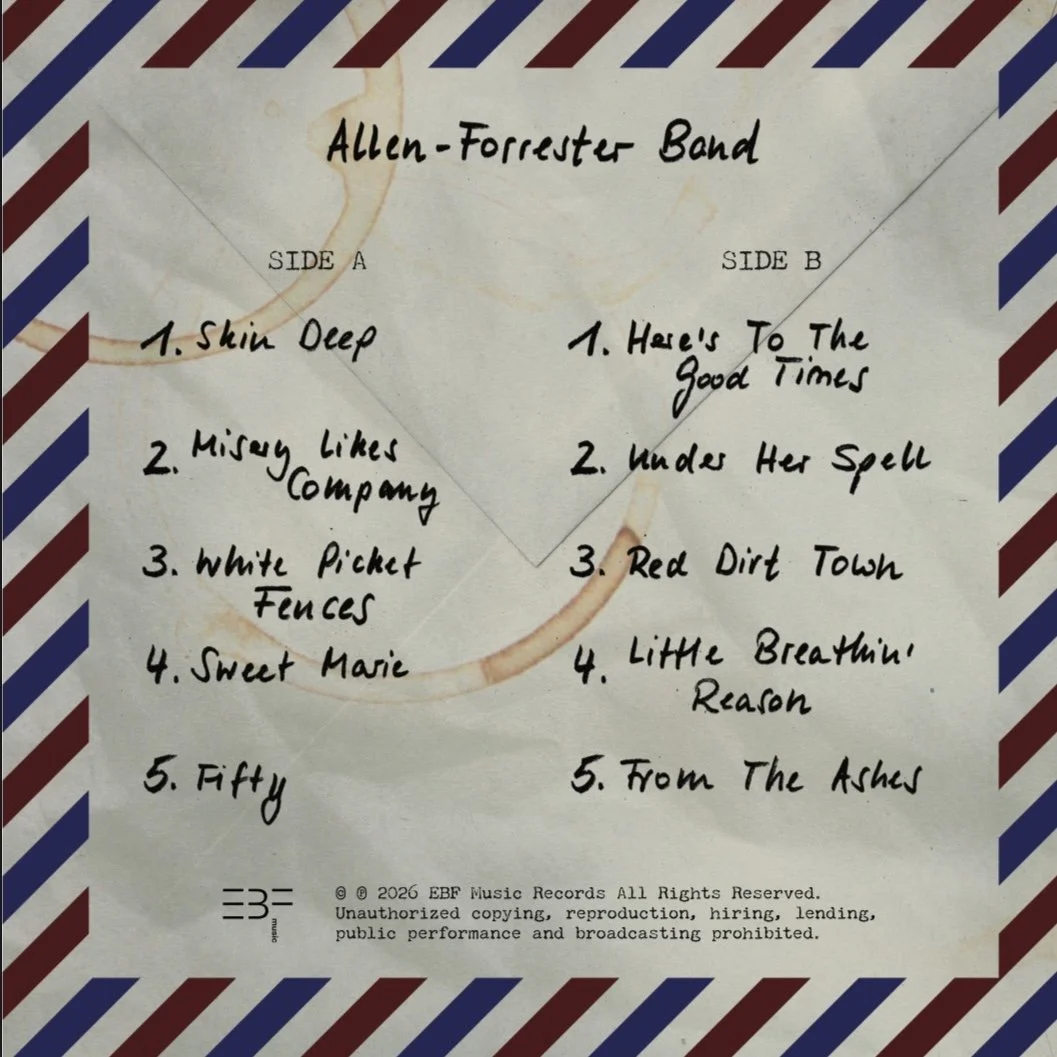 Allen-Forrester Band
SIDE A
1. Skin Deep
2. Misery Likes
Company
3. White Picket
Fences
4. Sweet Marie
5. Fifty
SIDE B
1. Here's To The
Good Times
2. Under Her Spell
3. Red Dirt Town
4. Little Breathin'
Reason
5. From The Ashes
EBF
music
© ℗ 2026 EBF Music Records All Rights Reserved.
Unauthorized copying, reproduction, hiring, lending,
public performance and broadcasting prohibited.